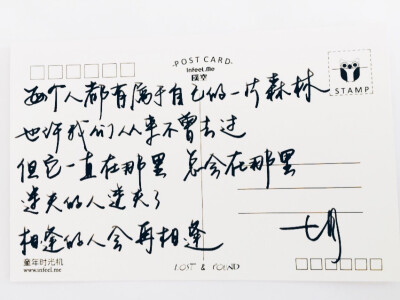 POST CARD
Infeel.Me
璞空
STAMP
每个人都有属于自己的一片森林
也许我们从来不曾去过
但它一直在那里 总会在那里
迷失的人迷失了
相逢的人会再相逢
七月
童年时光机
www.infeel.me
LOST & FOUND